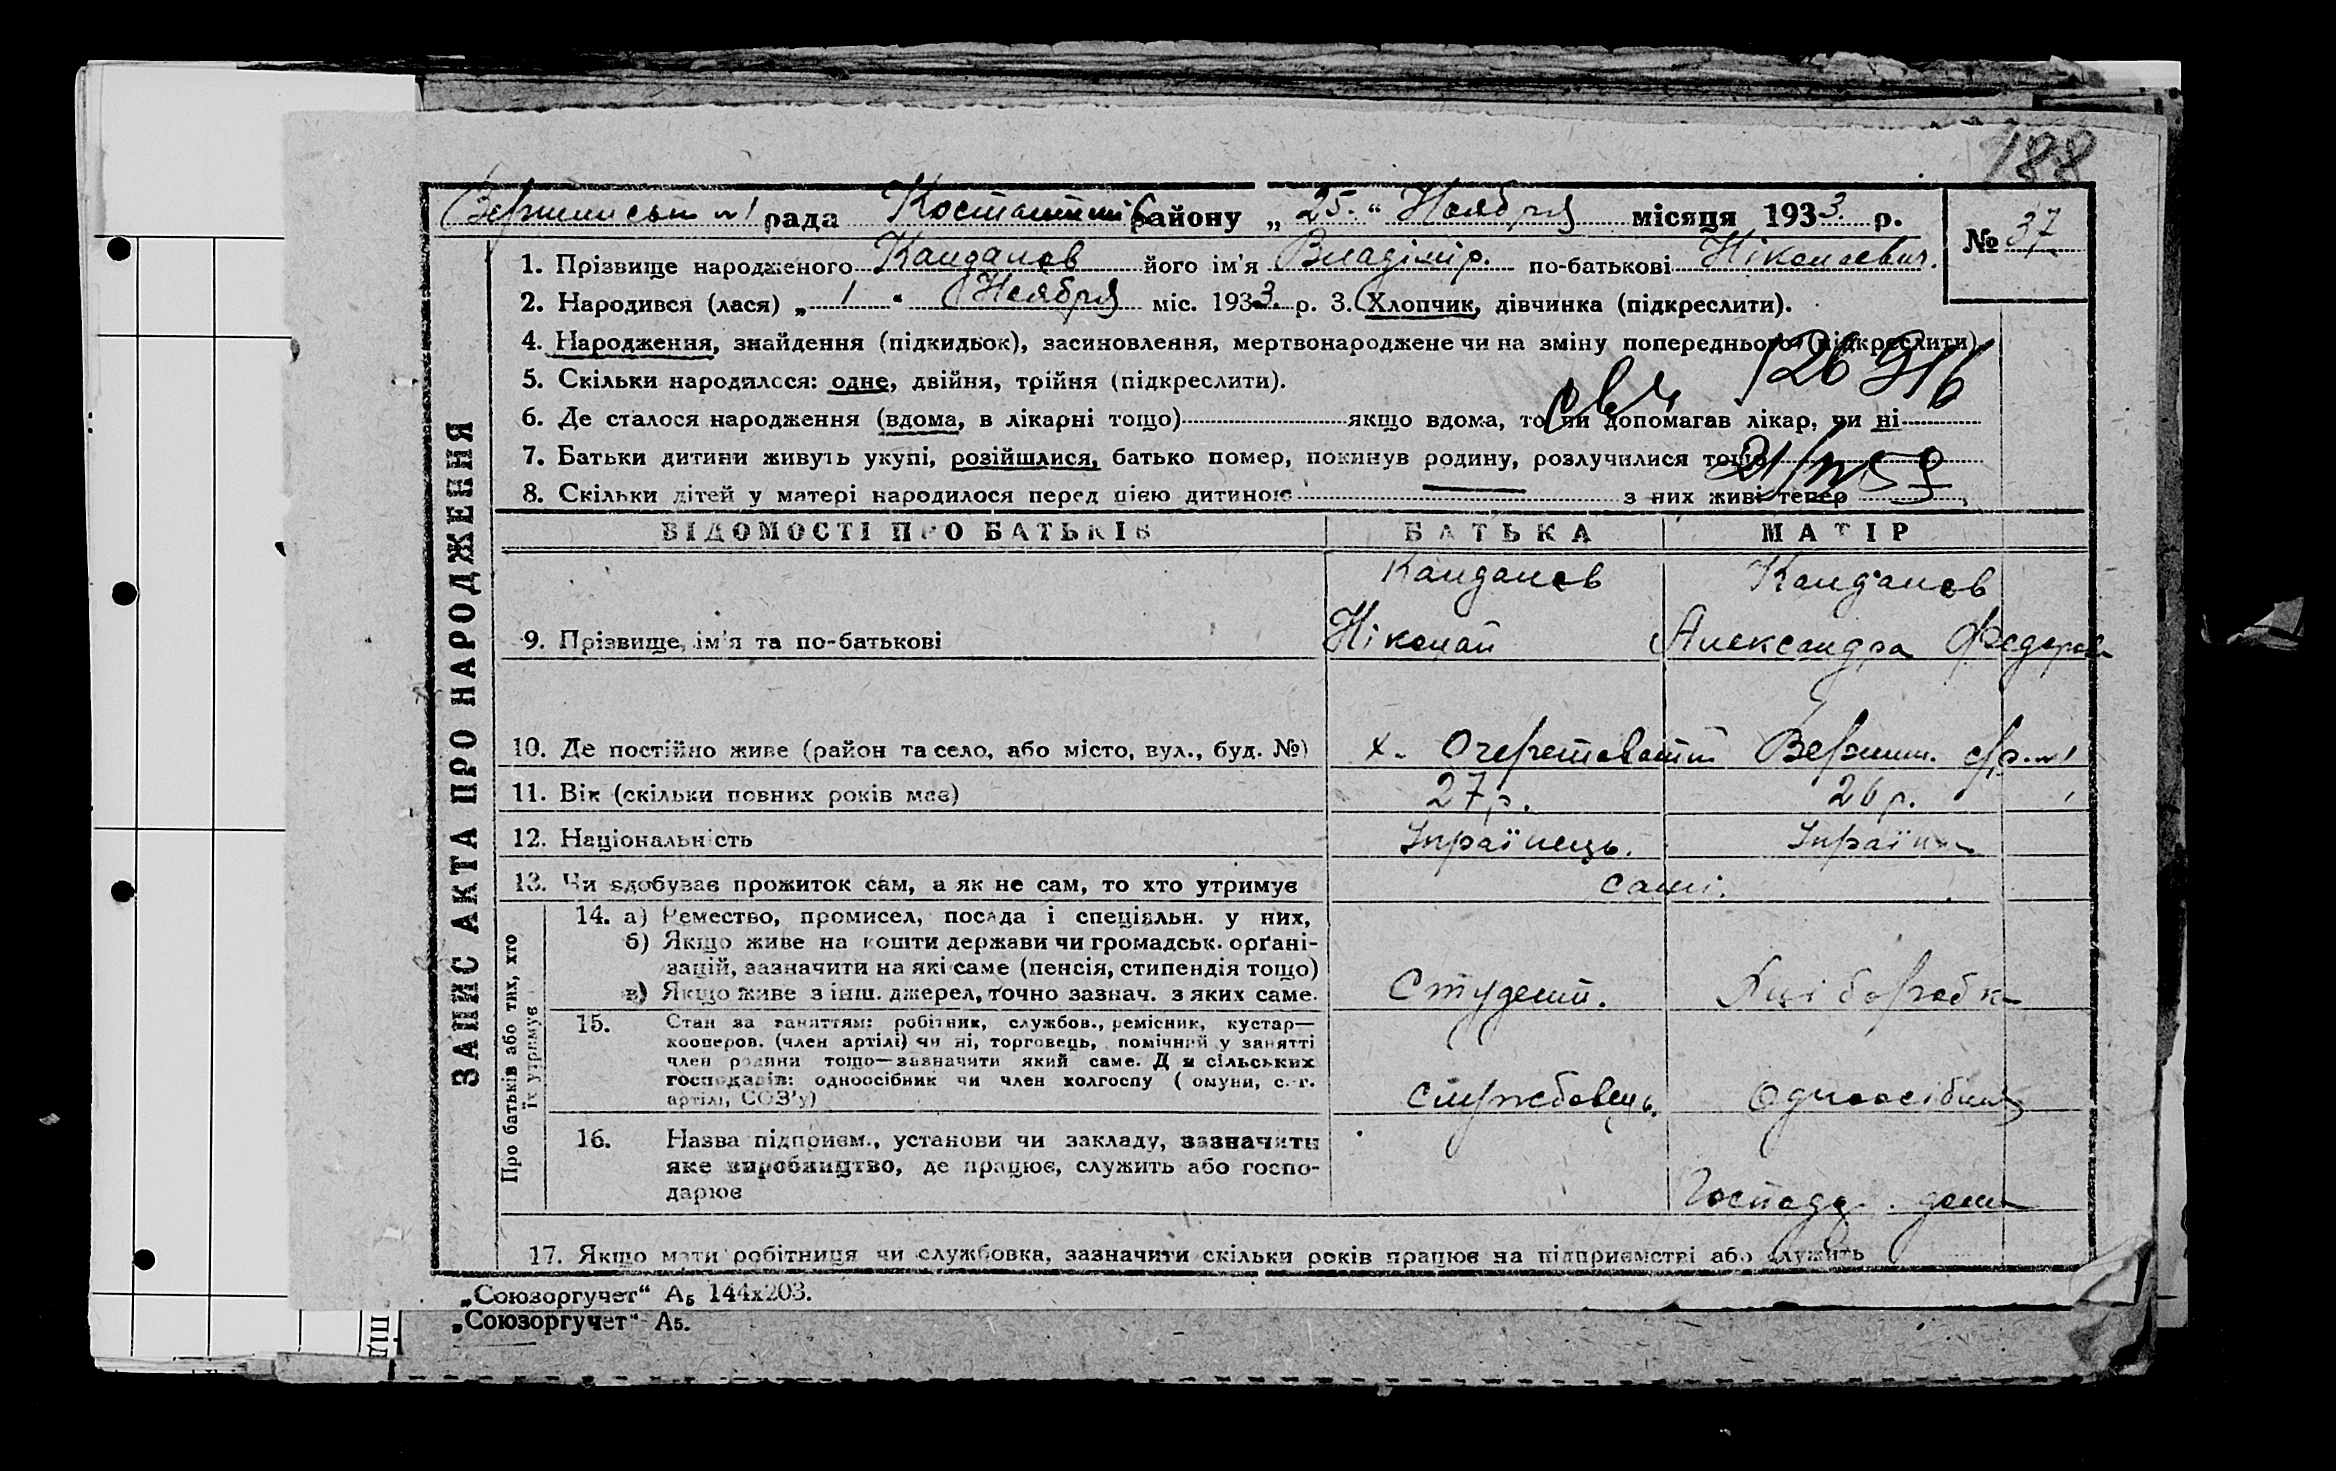 188
Вершинська №1 рада Костантинів району „25.“ Ноября місяця 1933 р.
№ 37
1. Прізвище народженого Кандацов його ім'я Владімір. по-батькові Ніколаевич.
2. Народився (лася) „1“ Ноября міс. 1933. р. 3. Хлопчик, дівчинка (підкреслити).
4. Народження, знайдення (підкидьок), засиновлення, мертвонароджене чи на зміну попереднього (підкреслити)
5. Скільки народилося: одне, двійня, трійня (підкреслити).
6. Де сталося народження (вдома, в лікарні тощо) якщо вдома, то чи допомагав лікар, чи ні
7. Батьки дитини живуть укупі, розійшлися, батько помер, покинув родину, розлучилися тощо
8. Скільки дітей у матері народилося перед цією дитиною — з них живі тепер
ЗАПИС АКТА ПРО НАРОДЖЕННЯ
ВІДОМОСТІ ПРО БАТЬКІВ БАТЬКА МАТІР
9. Прізвище, ім'я та по-батькові
Ніколай Александра
10. Де постійно живе (район та село, або місто, вул., буд. №) х. Очеретоватий Вершин. с/р. №1
11. Вік (скільки повних років має) 27 р. 26 р.
12. Національність Українець. Українка
13. Чи здобуває прожиток сам, а як не сам, то хто утримує самі.
Про батьків або тих, хто
їх утримує
14. а) Ремество, промисел, посада і спеціяльн. у них,
б) Якщо живе на кошти держави чи громадськ. орґані-
зацій, зазначити на які саме (пенсія, стипендія тощо)
в) Якщо живе з інш. джерел, точно зазнач. з яких саме. Студент.
15. Стан за заняттям: робітник, службов., ремісник, кустар—
кооперов. (член артілі) чи ні, торговець, помічний у занятті
член родини тощо—зазначити який саме. Для сільських
господарів: одноосібник чи член колгоспу (комуни, с.-г.
артілі, СОЗ'у) службовець. Одноосібник
16. Назва підприєм., установи чи закладу, зазначити
яке виробництво, де працює, служить або госпо-
дарює Господар. дома
17. Якщо мати робітниця чи службовка, зазначити скільки років працює на підприємстві або служить
„Союзоргучет“ А5 144х203.
„Союзоргучет“ А5.